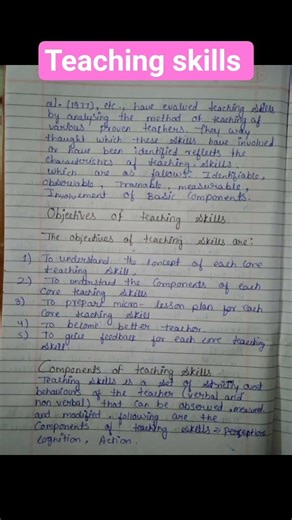 Teaching skills
al. (1977), etc., have evolved teaching skills
by analysing the method of teaching of
various proven teachers. They way
thought which these skills have involved
or have been identified reflects the
characteristics of teaching skills.
which are as follows. Identifiable,
observable, Trainable, measurable,
Involvement of Basic Components.
Objectives of teaching skills
The objectives of teaching skills are:
1) To understand the concept of each core
teaching skill.
2) To understand the Components of each
Core teaching skills
3) To prepare micro-lesson plan for each
Core teaching skill
4) To become better teacher
5) To give feedback for each core teaching
skill
Components of teaching skills
Teaching skills is a set of strictly
behaviours of the teacher (verbal and
non verbal) that can be observed, measured
and modified, following are the
Components of teaching skills = Perception,
Cognition, Action.